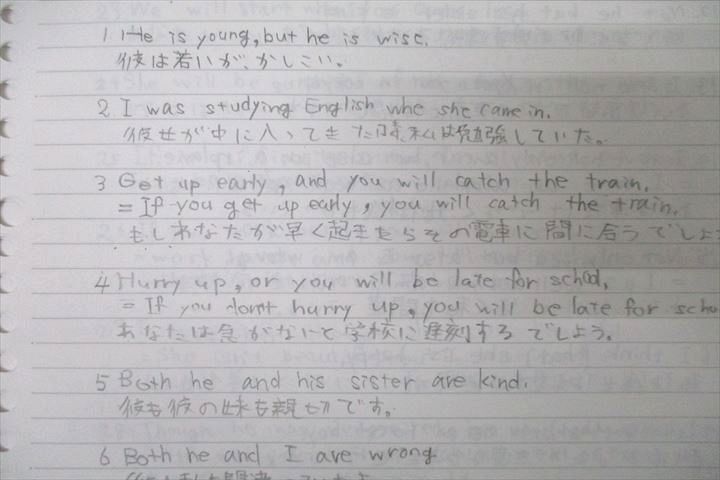 1 He is young, but he is wise.
彼は若いが、かしこい。
2 I was studying English whe she came in.
彼女が中に入ってきた時、私は勉強していた。
3 Get up early, and you will catch the train.
= If you get up early, you will catch the train.
もしあなたが早く起きたらその電車に間に合うでしょ
4 Hurry up, or you will be late for school.
= If you don't hurry up, you will be late for scho
あなたは急がないと学校に遅刻するでしょう。
5 Both he and his sister are kind.
彼も彼の妹も親切です。
6 Both he and I are wrong